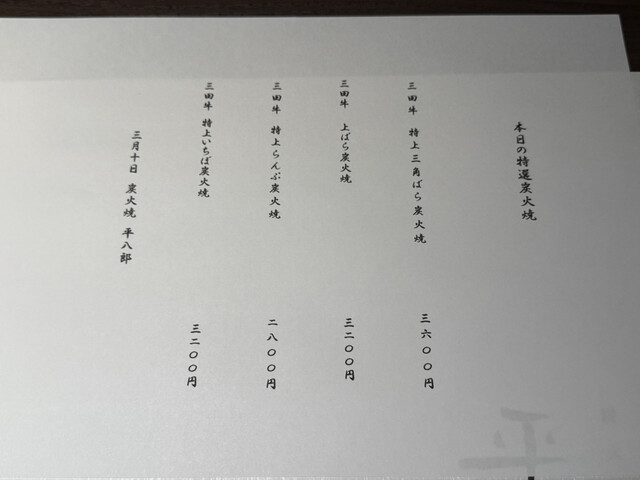 本日の特選炭火焼
三田牛 特上三角ばら炭火焼 三六〇〇円
三田牛 上ばら炭火焼 三二〇〇円
三田牛 特上らんぷ炭火焼 二八〇〇円
三田牛 特上いちぼ炭火焼 三二〇〇円
三月十日 炭火焼 平八郎
平